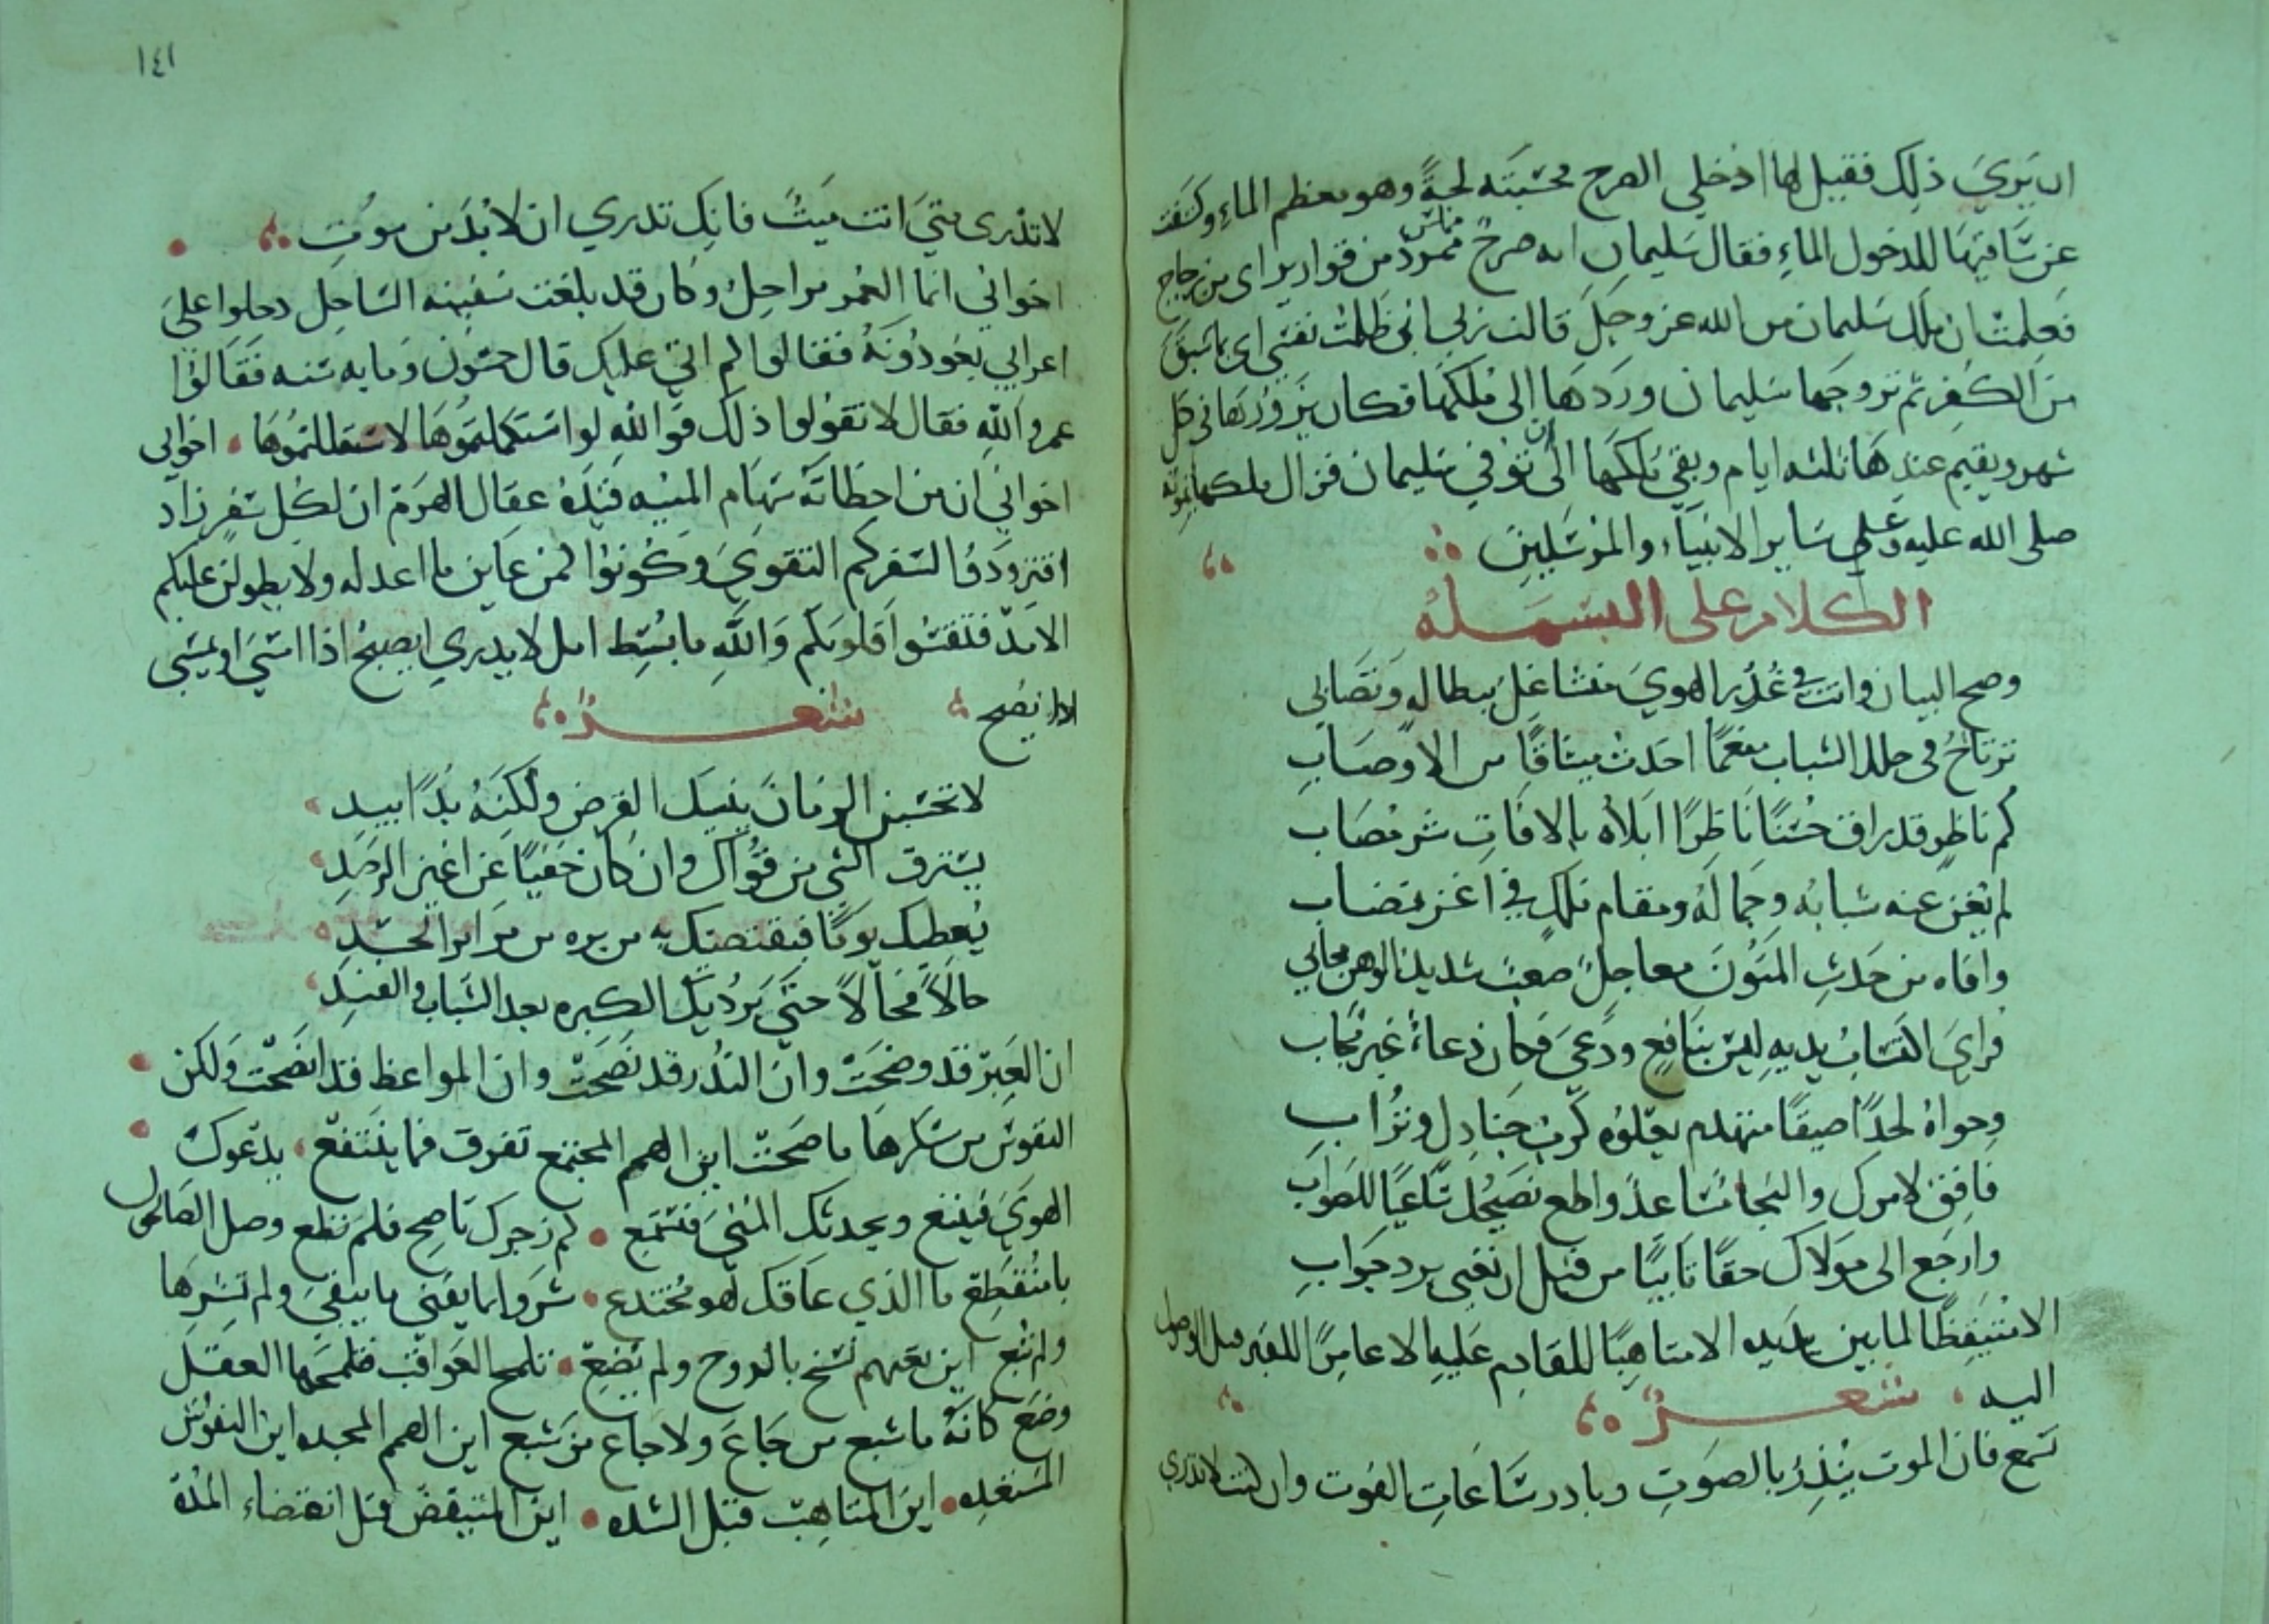 ان يري ذلك فقيل لها ادخلي الصرح فحسبته لجة وهو معظم الماء وكشفت
عن ساقيها للدخول الماء فقال سليمان انه صرح ممرد من قوارير اى من زجاج
فعلمت ان ملك سليمان من الله عز وجل قالت رب اني ظلمت نفسي اى بما سبق
من الكفر ثم تزوجها سليمان وردها الى ملكها فكان يزورها في كل
شهر ويقيم عندها ثلثه ايام وبقي ملكها الى ان توفي سليمان فزال ملكها بموته
صلى الله عليه وعلي ساير الانبياء والمرسلين
الكلام على البسمله
وضح البيان وانت في غرر الهوي متشاغل ببطاله وتصابى
ترتاح في حلل الشباب منعما احدث ميثاقا من الاوصاب
كم ناظر قد راق حسنا ناظرا ابلاه بالافات شر مصاب
لم يغن عنه شبابه وجماله ومقام ملك في اعز نصاب
وافاه من حدث المنون معاجل صعب شديد الوهن محابي
فراي اكتساب يديه ليس بنافع ودعي فكان دعاه غير مجاب
وحواه لحدا ضيقا متهدم يعلوه كرب جنادل وتراب
فافق لامرك والنجا مساعد واطع نصيحك تاعيا للصواب
وارجع الى مولاك حقا تايبا من قبل ان تعيى برد جواب
الا متيقظا لما بين يديه الا متاهبا للقادم عليه الا عامرا للقبر قبل الوصول
اليه شعر
تسمع فان الموت ينذر بالصوت وبادر ساعات الفوت وان كنت لا تدري
١٤١
لا تدرى متي انت ميت فانك تدري ان لا بد من موت
اخواني انما العمر مراحل وكان قد بلغت سفينه الساحل دخلوا على
اعرابي يعودونه فقالوا كم اتي عليك قال خمسون ومايه سنه فقالوا
عمر والله فقال لا تقولوا ذلك فوالله لو استكملتموها لاستقللتموها اخواني
اخواني ان من اخطاته سهام المنيه قيده عقال الهرم ان لكل سفر زاد
افتزودوا لسفركم التقوي وكونوا كمن عاين ما اعد له ولا يطولن عليكم
الامد فتقسوا قلوبكم والله ما بسط امل لا يدري ايصبح اذا امسي او يمسي
اذا يصبح شعر
لا تحسبن الزمان ينسيك القرض ولكنه يدا بيد
يسترق الشي من قواك وان كان خفيا عن اعين الرصد
يعطيك يوما فيقتضيك به من بره من مراير الحسد
حالا فحالا حتى يرديك الكبره بعد الشباب والفند
ان العبر قد وضحت وان النذر قد نصحت وان المواعظ قد افصحت ولكن
النفوس من سكرها ما صحت اين الهم المجتمع تفرق فما ينتفع يدعوك
الهوي فيتبع ويحدثك المني فتستمع كم زجرك ناصح فلم تطع وصل الصالحون
يا منقطع ما الذي عاقك لهو مختدع شروا بما يفنى ما يبقي ولم تشرها
ولم تبع اين تعبهم نسخ بالروح ولم يضع تلمح العواقب فلمحها العقل
وضع كانه ما شبع من جاع ولا جاع من شبع اين الهمم المجده اين النفوس
المستعده اين المتاهب قبل الشده اين المتيقض قبل انقضاء المدة